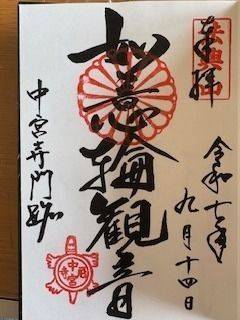 奉拝
法興山
令和七年
九月十四日
如意輪観音
中宮寺門跡
中宮尼寺